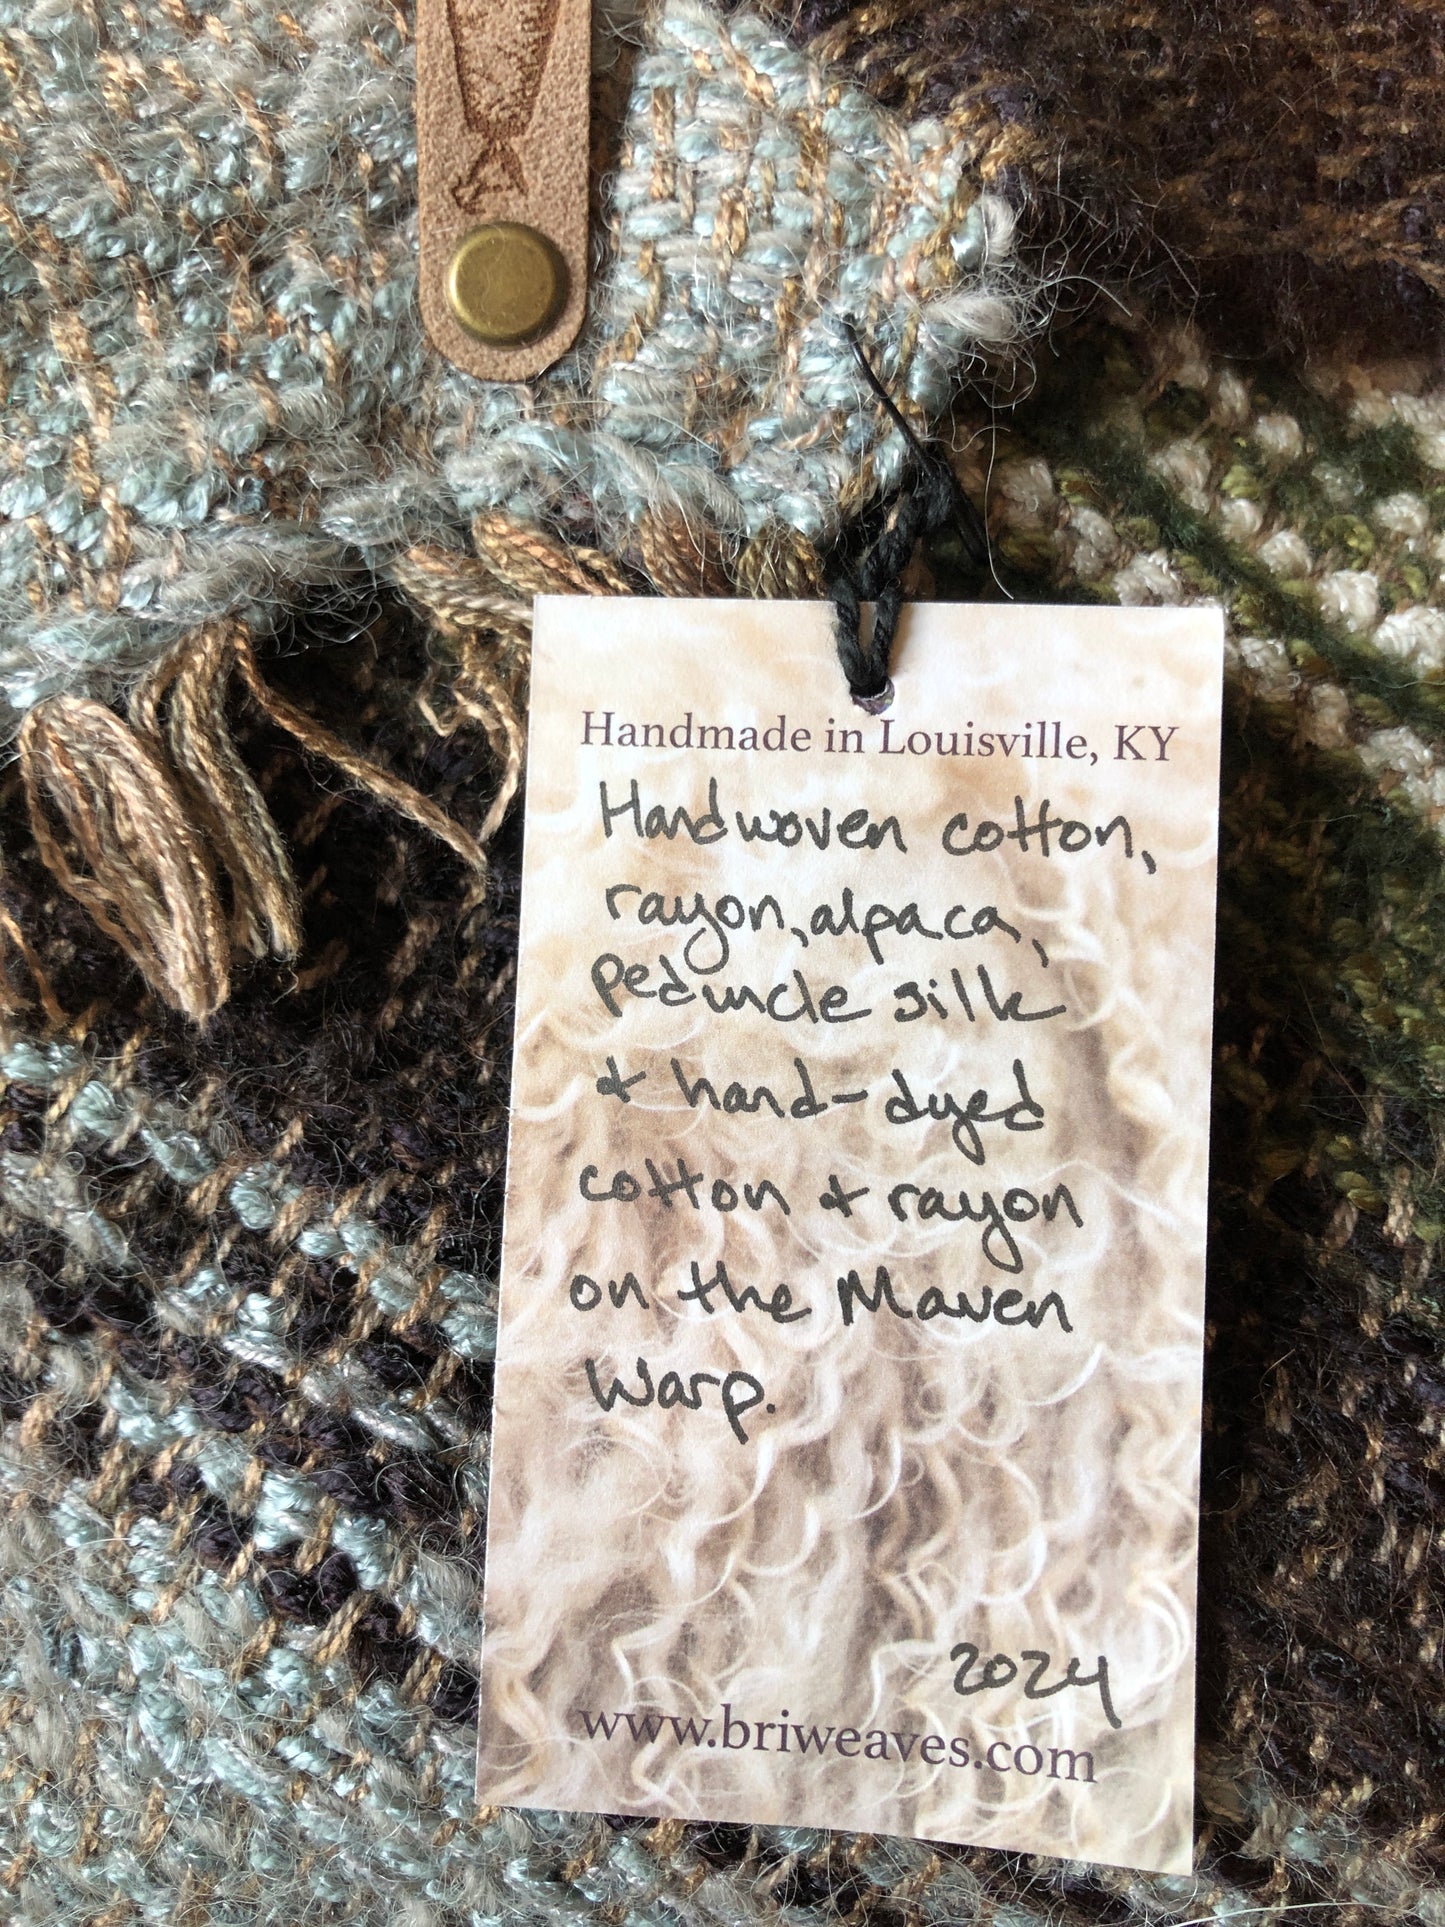 Handmade in Louisville, KY
Handwoven cotton,
rayon, alpaca,
peduncle silk
+ hand-dyed
cotton + rayon
on the Maven
Warp.
2024
www.briweaves.com